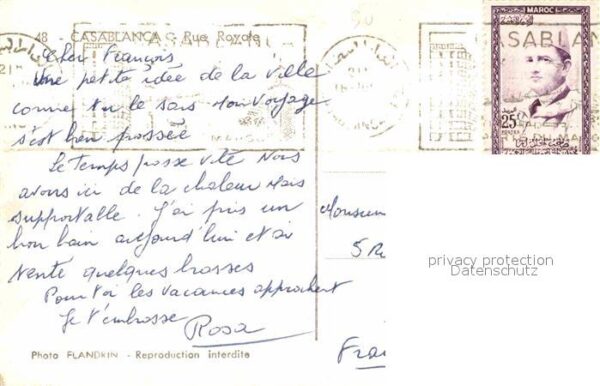 48 - CASABLANCA - Rue Royale
Cher François
Une petite idée de la ville
comme tu le sais mon voyage
s'est bien passé
Le temps passe vite nous
avons ici de la chaleur mais
supportable. J'ai pris un
bon bain aujourd'hui et ai
tenté quelques brasses
Pour toi les vacances approchent
Je t'embrasse
Rosa
Photo FLANDRIN - Reproduction interdite
MAROC
25
CASABLAN
Monsieur
5 R
Fra
privacy protection
Datenschutz